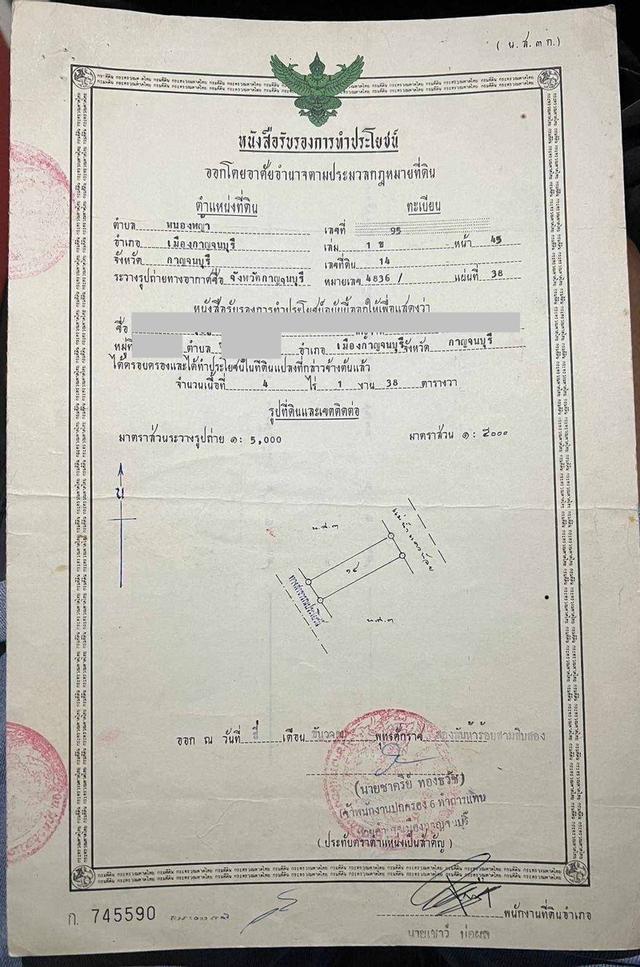 ( น.ส.๓ ก.)
หนังสือรับรองการทำประโยชน์
ออกโดยอาศัยอำนาจตามประมวลกฎหมายที่ดิน
ตำแหน่งที่ดิน
ทะเบียน
ตำบล หนองหญ้า
เลขที่ 95
อำเภอ เมืองกาญจนบุรี
เล่ม 1 ข หน้า 45
จังหวัด กาญจนบุรี
เลขที่ดิน 14
ระวางรูปถ่ายทางอากาศชื่อ จังหวัดกาญจนบุรี หมายเลข 4836 / แผ่นที่ 38
หนังสือรับรองการทำประโยชน์ฉบับนี้ออกให้เพื่อแสดงว่า
ชื่อ
หมู่ที่ ตำบล อำเภอ เมืองกาญจนบุรี จังหวัด กาญจนบุรี
ได้ครอบครองและได้ทำประโยชน์ในที่ดินแปลงที่กล่าวข้างต้นแล้ว
จำนวนเนื้อที่ 4 ไร่ 1 งาน 38 ตารางวา
รูปที่ดินและเขตติดต่อ
มาตราส่วนระวางรูปถ่าย ๑: 5,000
มาตราส่วน ๑: ๕๐๐๐
น
น.ส.๓
แม่น้ำแควน้อย
๑๔
ทางสาธารณประโยชน์
น.ส.๓
ออก ณ วันที่ สี่ เดือน ธันวาคม พุทธศักราช สองพันห้าร้อยสามสิบสอง
(นายชาตรีย์ ทองธวัช)
เจ้าพนักงานปกครอง 6 ทำการแทน
(ประทับตราตำแหน่งเป็นสำคัญ)
ก. 745590
พนักงานที่ดินอำเภอ
นายเชาว์ บ่อผล